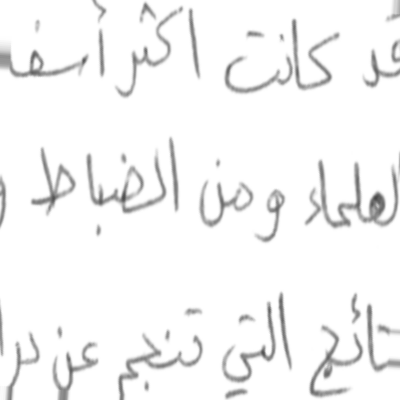 قد كانت اكثر أسفا
العلماء ومن الضباط و
نتائج التي تنجم عن درا